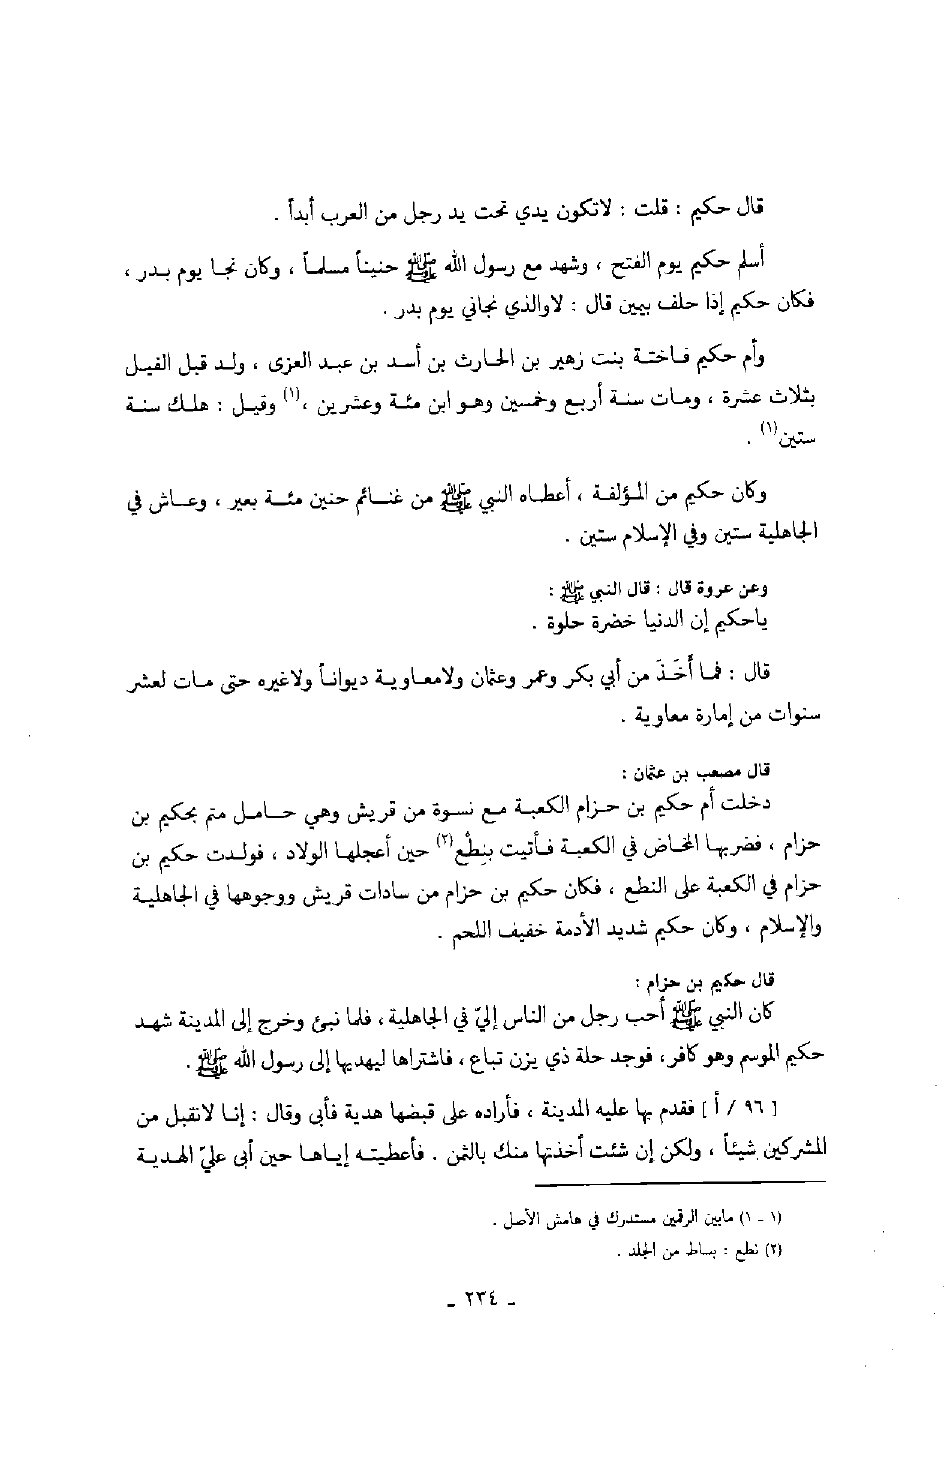 قال حكيم : قلت : لاتكون يدي تحت يد رجل من العرب أبداً .
أسلم حكيم يوم الفتح ، وشهد مع رسول الله ﷺ حنيناً مسلماً ، وكان نجا يوم بدر ،
فكان حكيم إذا حلف بيمين قال : لاوالذي نجاني يوم بدر .
وأم حكيم فاختة بنت زهير بن الحارث بن أسد بن عبد العزى ، ولد قبل الفيل
بثلاث عشرة ، ومات سنة أربع وخمسين وهو ابن مئة وعشرين ،(١) وقيل : هلك سنة
ستين(١) .
وكان حكيم من المؤلفة ، أعطاه النبي ﷺ من غنائم حنين مئة بعير ، وعاش في
الجاهلية ستين وفي الإسلام ستين .
وعن عروة قال : قال النبي ﷺ :
ياحكيم إن الدنيا خضرة حلوة .
قال : فما أَخَذَ من أبي بكر وعمر وعثمان ولامعاوية ديواناً ولاغيره حتى مات لعشر
سنوات من إمارة معاوية .
قال مصعب بن عثمان :
دخلت أم حكيم بن حزام الكعبة مع نسوة من قريش وهي حامل متم بحكيم بن
حزام ، فضربها المخاض في الكعبة فأتيت بنِطْع(٢) حين أعجلها الولاد ، فولدت حكيم بن
حزام في الكعبة على النطع ، فكان حكيم بن حزام من سادات قريش ووجوهها في الجاهلية
والإسلام ، وكان حكيم شديد الأدمة خفيف اللحم .
قال حكيم بن حزام :
كان النبي ﷺ أحب رجل من الناس إليّ في الجاهلية ، فلما نبئ وخرج إلى المدينة شهد
حكيم الموسم وهو كافر، فوجد حلة ذي يزن تباع ، فاشتراها ليهديها إلى رسول الله ﷺ .
[ ٩٦ / أ ] فقدم بها عليه المدينة ، فأراده على قبضها هدية فأبى وقال : إنا لانقبل من
المشركين شيئاً ، ولكن إن شئت أخذتها منك بالثمن . فأعطيته إياها حين أبى عليّ الهدية
(١ - ١) مابين الرقمين مستدرك في هامش الأصل .
(٢) نطع : بساط من الجلد .
- ٢٣٤ -